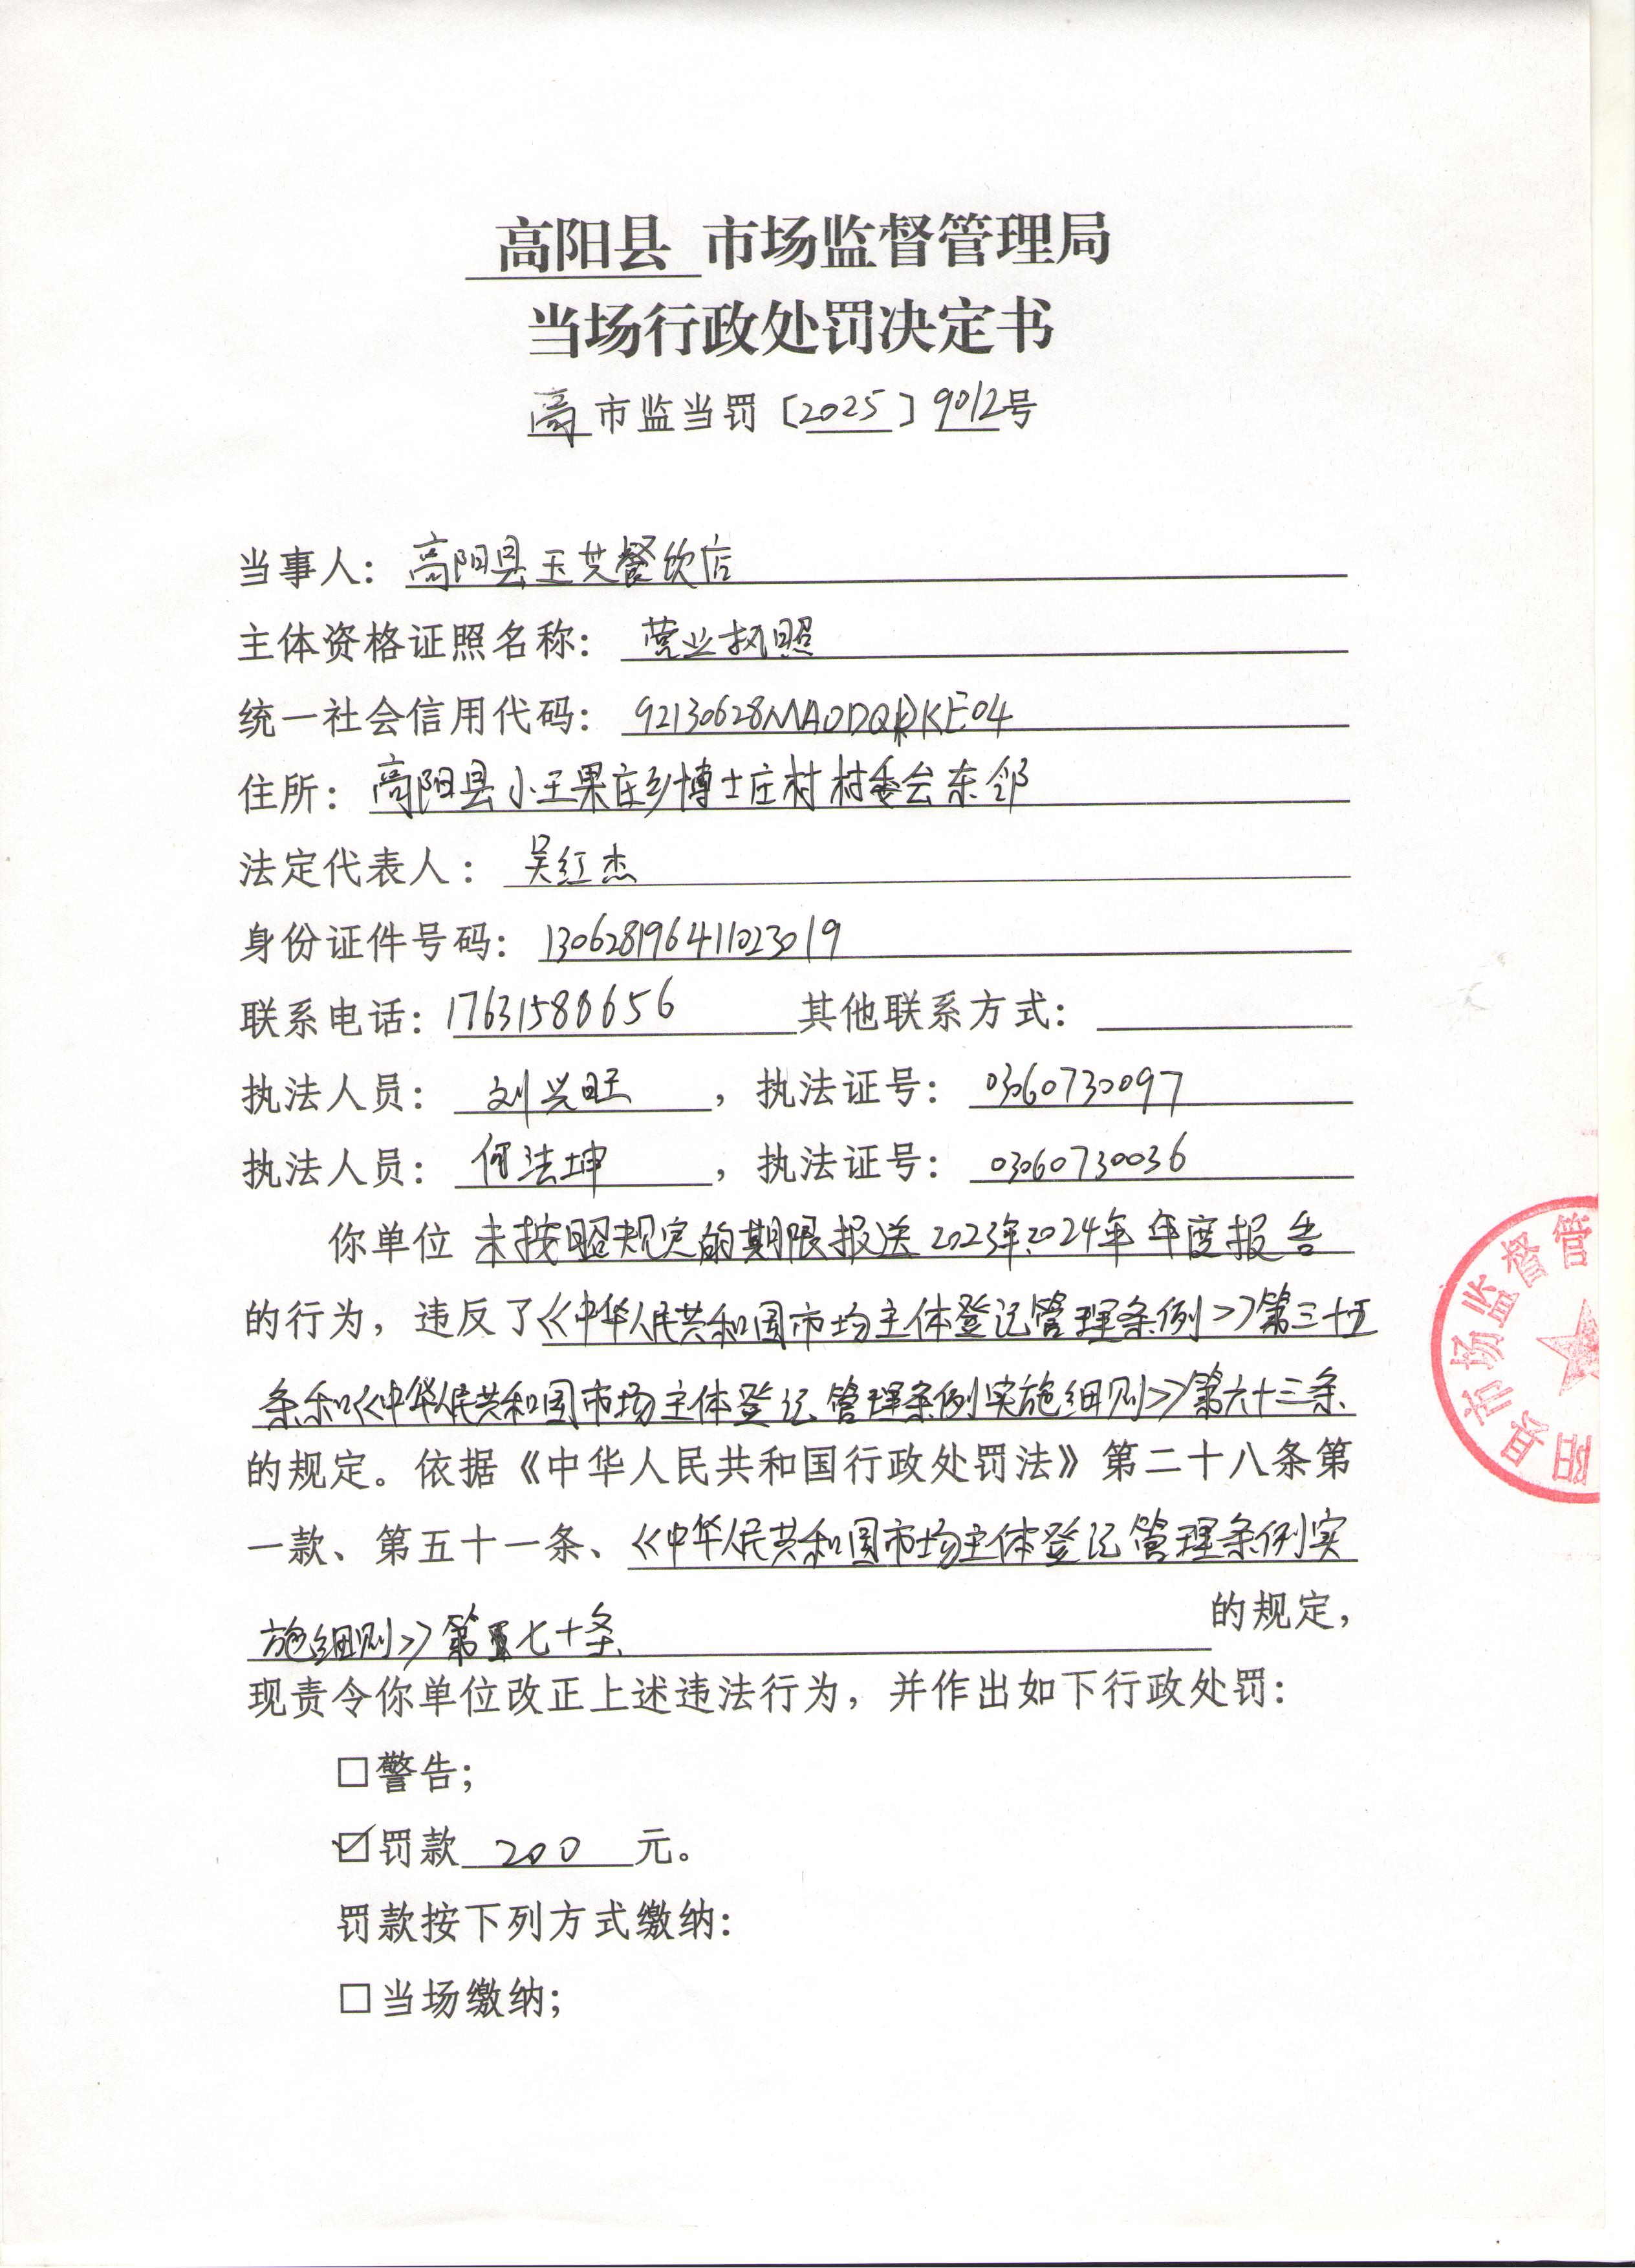 高阳县 市场监督管理局
当场行政处罚决定书
高市监当罚〔2025〕9012号
当事人：高阳县玉芝餐饮店
主体资格证照名称：营业执照
统一社会信用代码：92130628MA0DQKE04
住所：高阳县小王果庄乡博士庄村村委会东邻
法定代表人：吴红杰
身份证件号码：130628196411023019
联系电话：17631588656 其他联系方式：
执法人员：刘兴旺，执法证号：03060730097
执法人员：何法坤，执法证号：03060730036
你单位 未按照规定的期限报送2023年、2024年年度报告
的行为，违反了《中华人民共和国市场主体登记管理条例》第三十五
条和《中华人民共和国市场主体登记管理条例实施细则》第六十三条
的规定。依据《中华人民共和国行政处罚法》第二十八条第
一款、第五十一条、《中华人民共和国市场主体登记管理条例实
施细则》第七十条 的规定，
现责令你单位改正上述违法行为，并作出如下行政处罚：
□警告；
☑罚款 200 元。
罚款按下列方式缴纳：
□当场缴纳；
阳县市场监督管